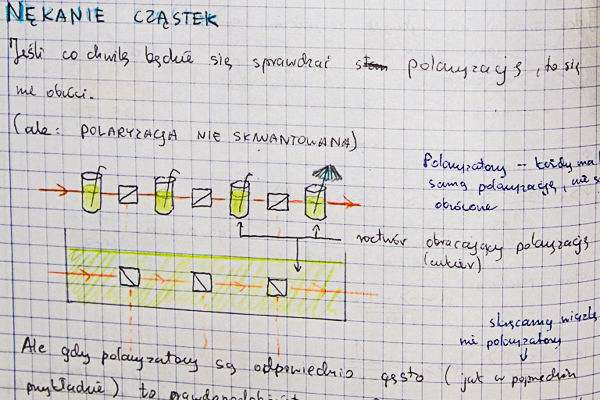 NĘKANIE CZĄSTEK
Jeśli co chwilę będzie się sprawdzać stan polaryzację, to się
nie obróci.
(ale: POLARYZACJA NIE SKWANTOWANA)
Polaryzatory – każdy ma
samą polaryzację, nie s
obrócone
roztwór obracający polaryzację
(cukier)
skręcamy wiązkę
nie polaryzatory
Ale gdy polaryzatory są odpowiednio gęsto (jak w poprzednim
przykładzie) to prawdopodobieńst